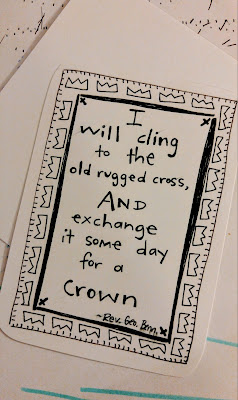 I
will cling
to the
old rugged cross,
AND
exchange
it some day
for a
crown
~Rev. Geo. Benn.